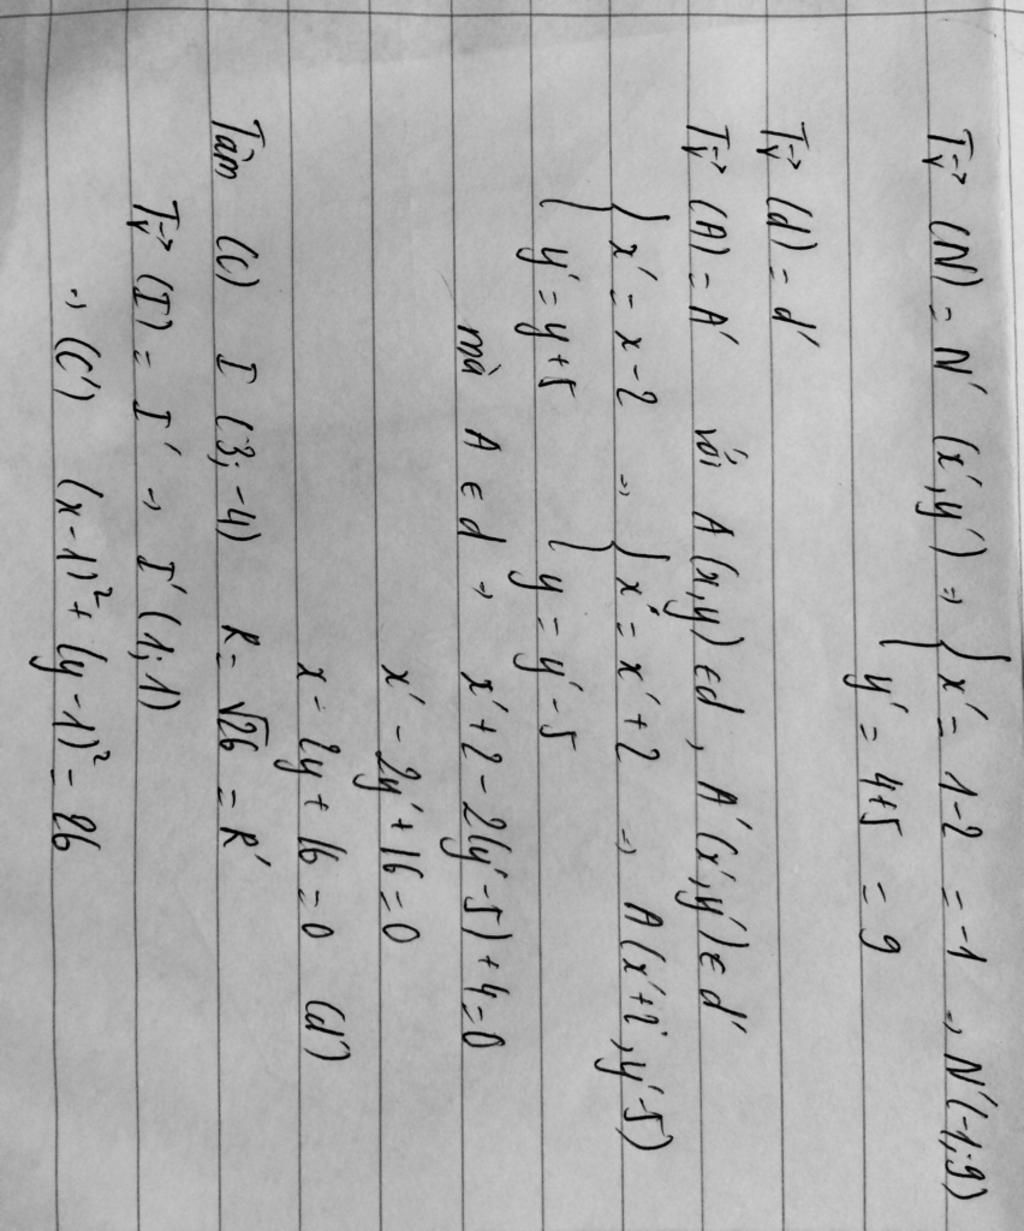 Tv→ (N) = N' (x',y') => { x' = 1-2 = -1 -> N'(-1;9)
{ y' = 4+5 = 9
Tv→ (d) = d'
Tv→ (A) = A' với A(x,y) ∈ d, A'(x',y') ∈ d'
{ x' = x-2 -> { x = x'+2 -> A(x'+2, y'-5)
{ y' = y+5 { y = y'-5
mà A ∈ d -> x'+2-2(y'-5)+4=0
x' - 2y' + 16 = 0
x - 2y + 16 = 0 (d')
Tâm (C) I (3;-4) R = √26 = R'
Tv→ (I) = I' -> I' (1;1)
-> (C') (x-1)² + (y-1)² = 26